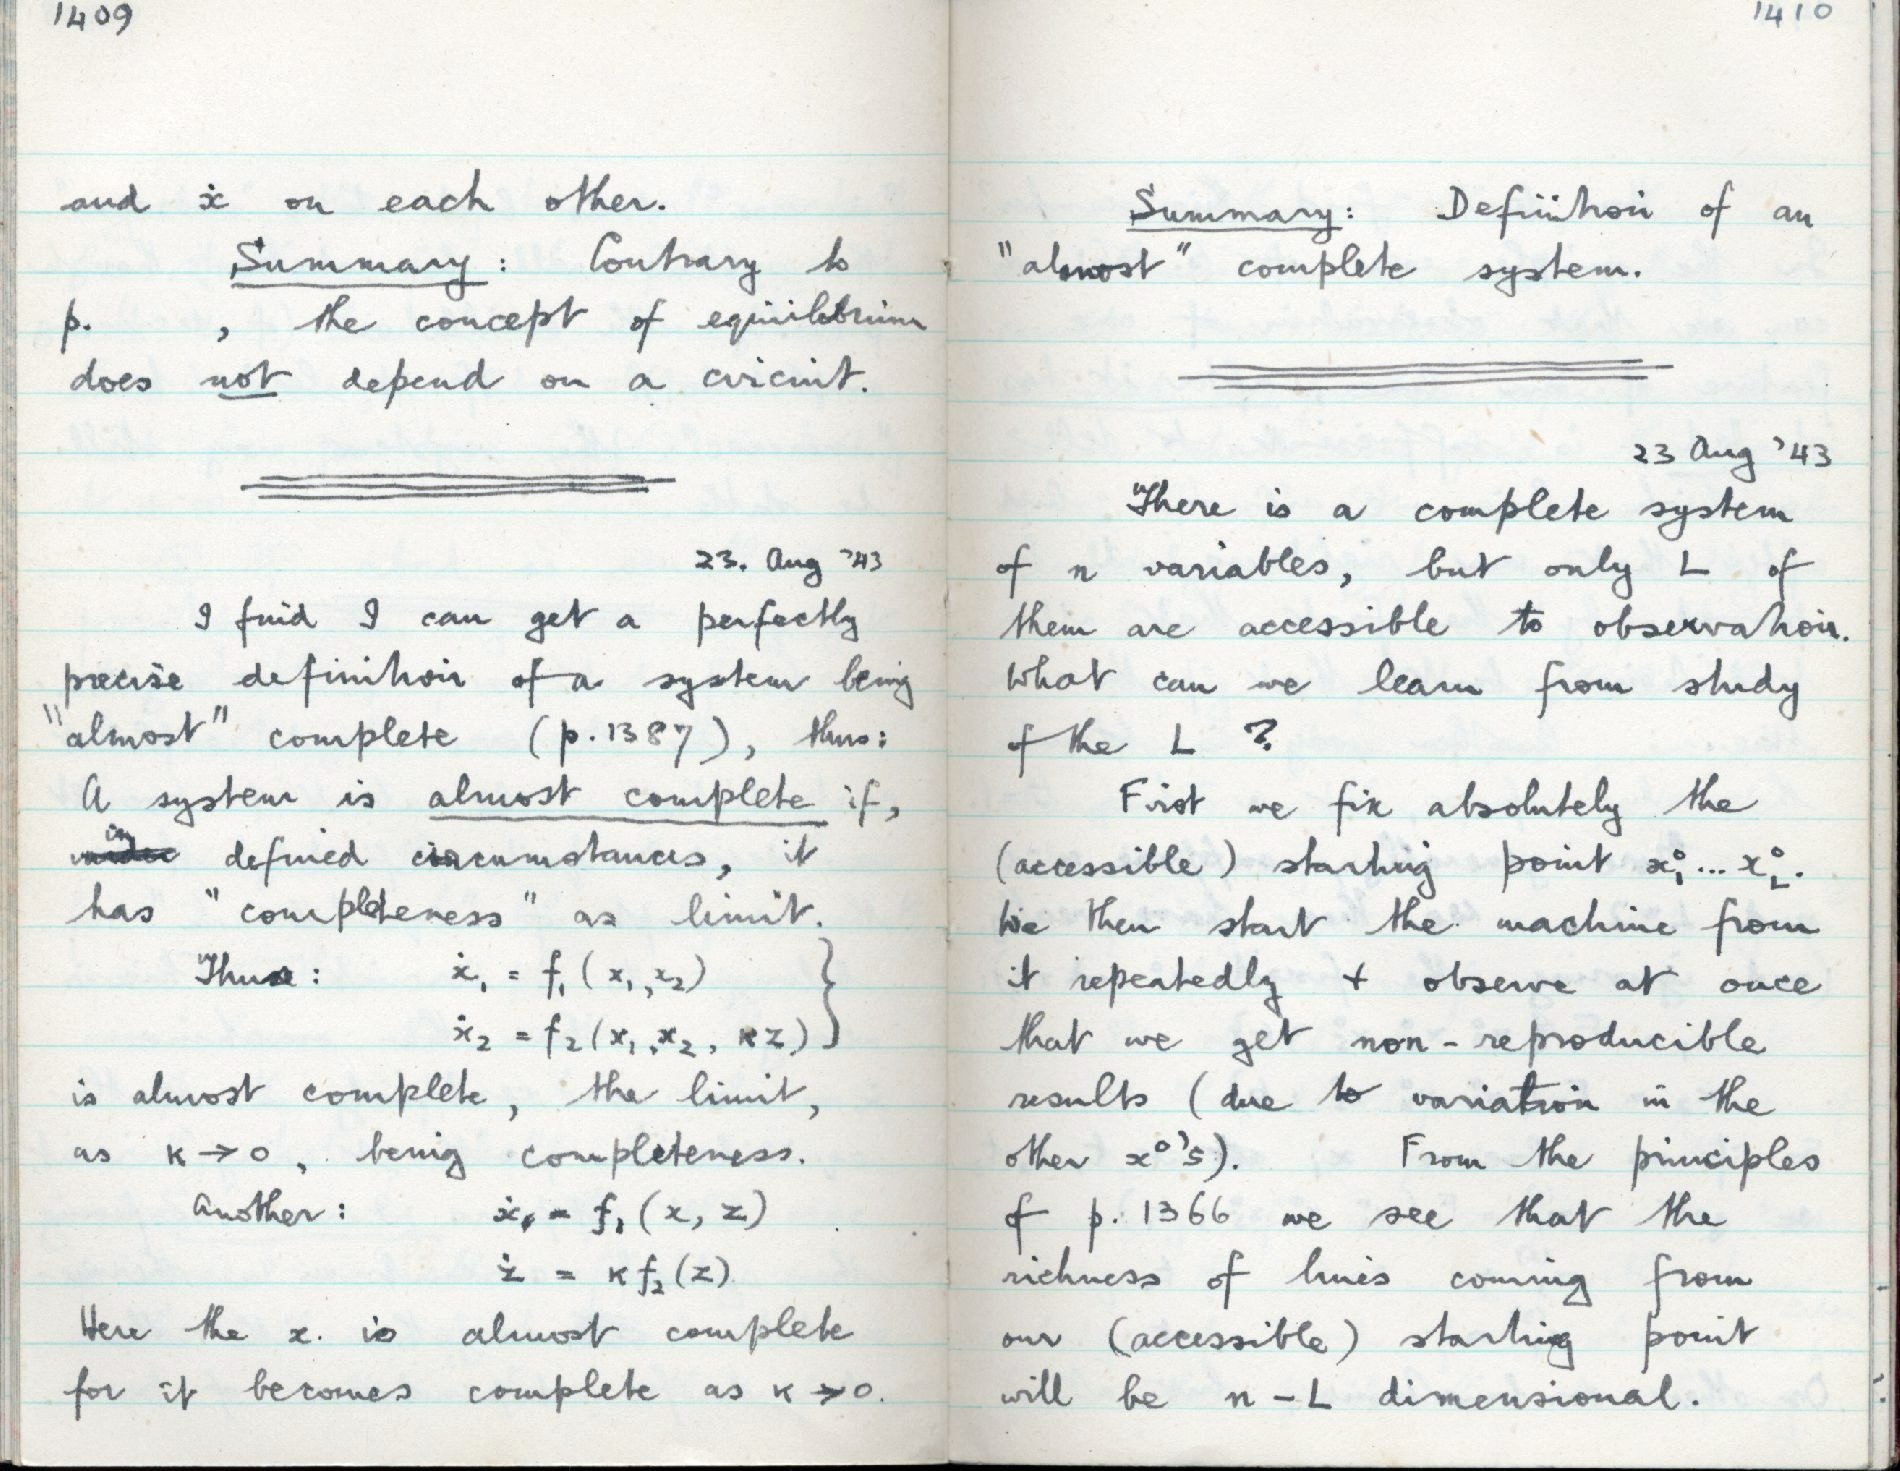 1409
and ẋ on each other.
Summary: Contrary to
p. , the concept of equilibrium
does not depend on a circuit.
23. Aug '43
I find I can get a perfectly
precise definition of a system being
"almost" complete (p. 1387), thus:
A system is almost complete if,
in
defined circumstances, it
has "completeness" as limit.
Thus: ẋ₁ = f₁(x₁, x₂)
ẋ₂ = f₂(x₁, x₂, κz) }
is almost complete, the limit,
as κ → 0, being completeness.
Another: ẋ = f₁(x, z)
ż = κf₂(z)
Here the x. is almost complete
for it becomes complete as κ → 0.
1410
Summary: Definition of an
"almost" complete system.
23 Aug '43
There is a complete system
of n variables, but only L of
them are accessible to observation.
What can we learn from study
of the L ?
First we fix absolutely the
(accessible) starting point x₁⁰ ... x_L⁰.
We then start the machine from
it repeatedly + observe at once
that we get non-reproducible
results (due to variation in the
other x⁰'s). From the principles
of p. 1366 we see that the
richness of lines coming from
our (accessible) starting point
will be n - L dimensional.